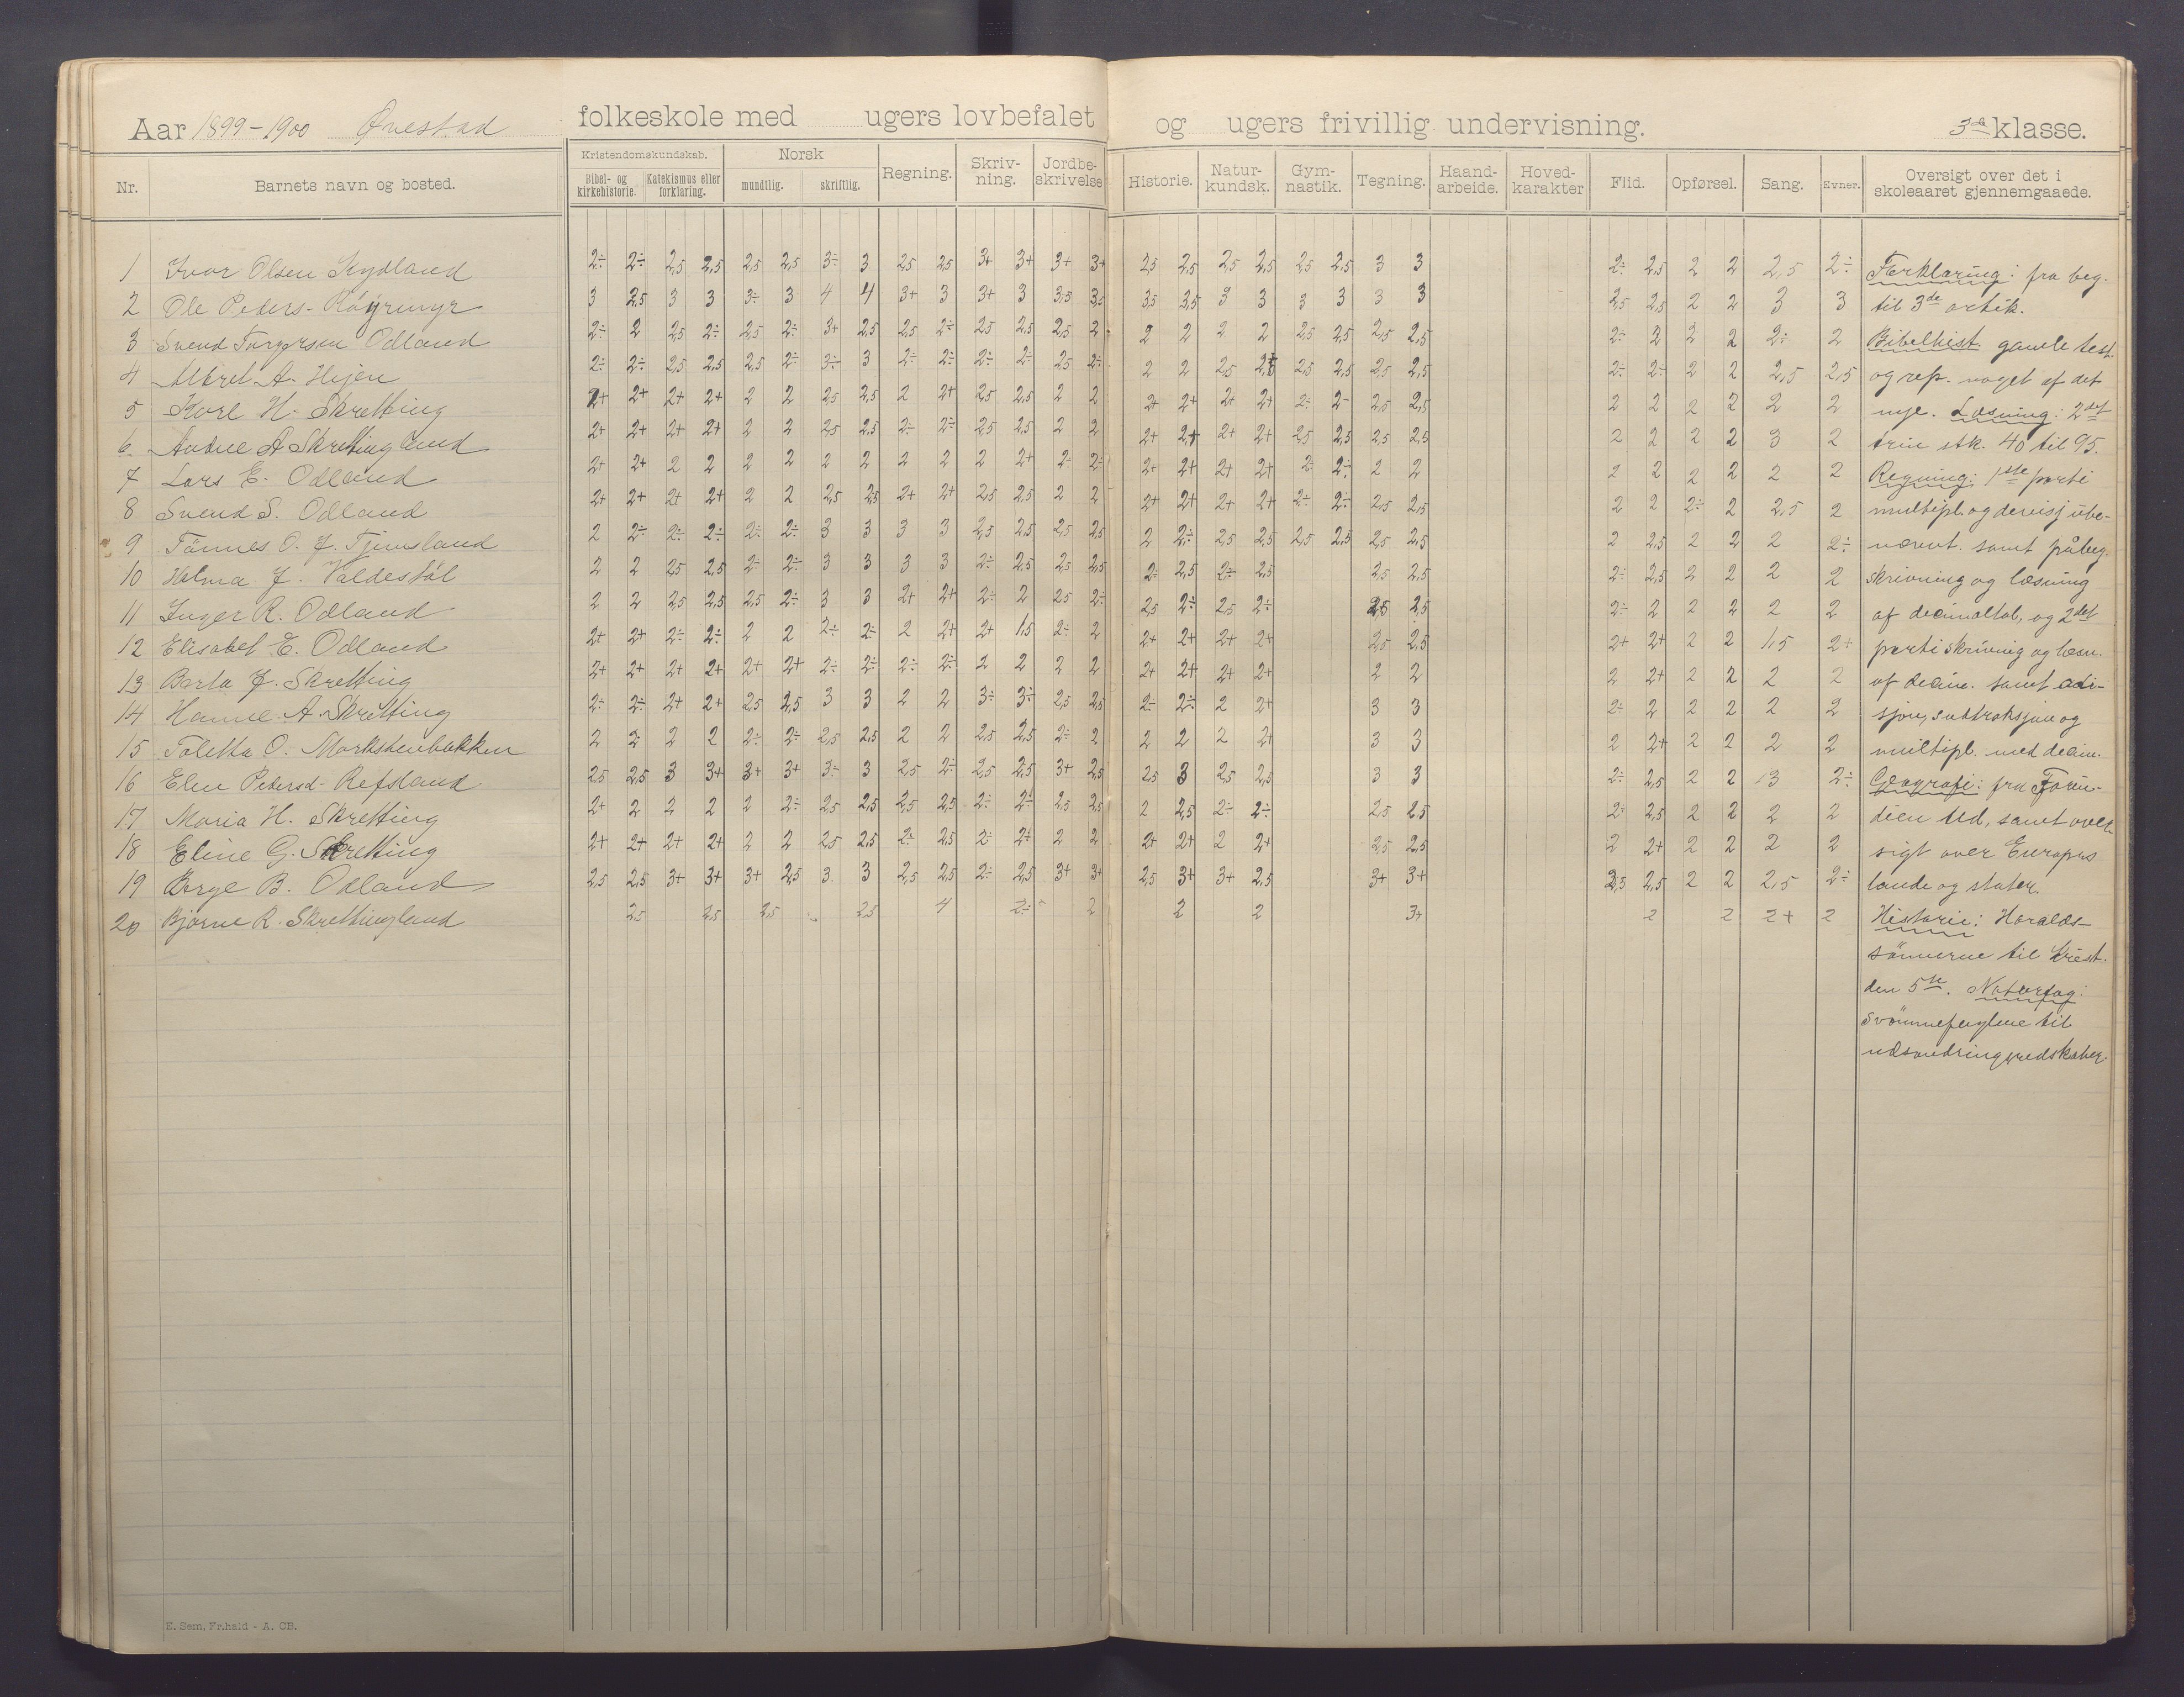 Aar 1899-1900 Ovestad folkeskole med ugers lovbefalet og ugers frivillig undervisning. 3de klasse.
Nr. Barnets navn og bosted. Kristendomskundskab. Bibel- og kirkehistorie. Katekismus eller forklaring. Norsk mundtlig. skriftlig. Regning. Skriv- ning. Jordbe- skrivelse Historie. Natur- kundsk. Gym- nastik. Tegning. Haand- arbeide. Hoved- karakter Flid. Opførsel. Sang. Evner. Oversigt over det i skoleaaret gjennemgaaede.
1 Ivar Olsen Kydland 2÷ 2÷ 2,5 2,5 2,5 2,5 3÷ 3 2,5 2,5 3+ 3+ 3+ 3+ 2,5 2,5 2,5 2,5 2,5 2,5 3 3 2÷ 2,5 2 2 2,5 2÷ Forklaring: fra beg.
2 Ole Peders- Röyrmyr 3 2,5 3 3 3÷ 3 4 4 3+ 3 3+ 3 3,5 3,5 3,5 3,5 3 3 3 3 3 3 2,5 2,5 2 2 3 3 til 3de artik.
3 Svend Torgersen Odland 2÷ 2 2,5 2÷ 2,5 2÷ 3+ 2,5 2,5 2÷ 2,5 2,5 2,5 2 2 2 2 2 2,5 2,5 2,5 2,5 2÷ 2 2 2 2÷ 2 Bibelhist. gamle test.
4 A. Højen 2÷ 2÷ 2,5 2,5 2,5 2÷ 3÷ 3 2÷ 2÷ 2÷ 2÷ 2,5 2÷ 2 2 2,5 2,5 2,5 2,5 2,5 2÷ 2÷ 2 2 2,5 2,5 og rep. noget af det
5 Karl H. Skretting 2+ 2+ 2+ 2+ 2 2 2,5 2,5 2 2+ 2,5 2,5 2 2 2+ 2+ 2+ 2+ 2÷ 2- 2,5 2,5 2 2 2 2 2 2 nye. Læsning: 2det
6. A Skrettingland 2+ 2+ 2+ 2+ 2 2 2,5 2,5 2÷ 2÷ 2,5 2,5 2 2 2+ 2+ 2+ 2+ 2,5 2,5 2,5 2,5 2 2 2 2 3 2 trin stk. 40 til 95.
7 Lars E. Odland 2+ 2+ 2 2 2 2 2 2 2 2 2 2+ 2÷ 2÷ 2+ 2+ 2+ 2+ 2÷ 2÷ 2 2 2 2 2 2 2 2 Regning: 1ste parti
8 Svend S. Odland 2+ 2+ 2+ 2+ 2 2 2,5 2,5 2+ 2+ 2,5 2,5 2 2 2+ 2+ 2+ 2+ 2÷ 2÷ 2,5 2,5 2 2 2÷ 2 2,5 2 multipl. og devisj ube-
9 Tönnes O. J. Tjemsland 2 2÷ 2÷ 2÷ 2÷ 2÷ 3 3 3 3 2,5 2,5 2,5 2,5 2 2÷ 2,5 2,5 2,5 2,5 2,5 2,5 2 2,5 2 2 2 2÷ nævnt. samt påbeg.
10 Halma J. Valdestöl 2 2 2,5 2,5 2÷ 2÷ 3 3 3 3 2÷ 2,5 2,5 2,5 2÷ 2,5 2÷ 2,5 2,5 2,5 2÷ 2,5 2 2 2 2 skrivning og læsning
11 Inger R. Odland 2 2 2,5 2,5 2,5 2÷ 3 3 2+ 2+ 2÷ 2 2,5 2÷ 2,5 2÷ 2,5 2÷ 2,5 2,5 2÷ 2 2 2 2 2 af decimaltal, og 2det
12 Elisabet E. Odland 2+ 2+ 2÷ 2÷ 2 2 2÷ 2÷ 2 2+ 2+ 1,5 2÷ 2 2+ 2+ 2+ 2+ 2,5 2,5 2+ 2+ 2 2 1,5 2+ parti skrivning og læsn.
13 Berta J. Skretting 2+ 2+ 2+ 2+ 2+ 2+ 2÷ 2÷ 2÷ 2÷ 2 2 2 2 2+ 2+ 2+ 2+ 2 2 2 2+ 2 2 2 2 af decim. samt adi-
14 Hanne A. Skretting 2÷ 2÷ 2+ 2+ 2,5 2,5 3 3 2 2 3÷ 3÷ 2,5 2,5 2÷ 2÷ 2 2+ 3 3 2÷ 2 2 2 2 2 sjon, subtraksjon og
15 Toletta O. Markstenbakken 2 2 2 2 2÷ 2÷ 2,5 2,5 2 2 2,5 2,5 2÷ 2 2 2 2 2+ 3 3 2 2+ 2 2 2 2 multipl. med decim.
16 Elen Petersd- Refsland 2,5 2,5 3 3+ 3+ 3+ 3÷ 3 2,5 2÷ 2,5 2,5 3+ 2,5 2,5 3 2,5 2,5 3 3 2÷ 2,5 2 2 3 2÷ Geografi: fra
17 Maria H. Skretting 2+ 2 2 2 2 2÷ 2,5 2,5 2,5 2,5 2÷ 2÷ 2,5 2,5 2 2,5 2÷ 2÷ 2,5 2,5 2÷ 2,5 2 2 2 2 dien ud, samt over-
18 Eline G. Skretting 2+ 2+ 2+ 2+ 2 2 2,5 2,5 2÷ 2,5 2÷ 2÷ 2 2 2+ 2+ 2 2+ 2,5 2,5 2 2+ 2 2 2 2 sigt over Europas
19 Berge B. Odland 2,5 2,5 3+ 3+ 3+ 2,5 3. 3 2,5 2,5 2÷ 2,5 3+ 3+ 2,5 3+ 3+ 2,5 3+ 3+ 2,5 2,5 2 2 2,5 2÷ lande og stater.
20 Bjarne R. Skrettingland 2,5 2,5 2,5 2,5 4 2÷ 2 2 2 3+ 2 2 2+ 2 Historie: Haralds-
sönnerne til Krist.
den 5te. Naturfag:
svömmefuglene til
udsondringsredskaber.
E. Sem, Fr.hald - A. CB.